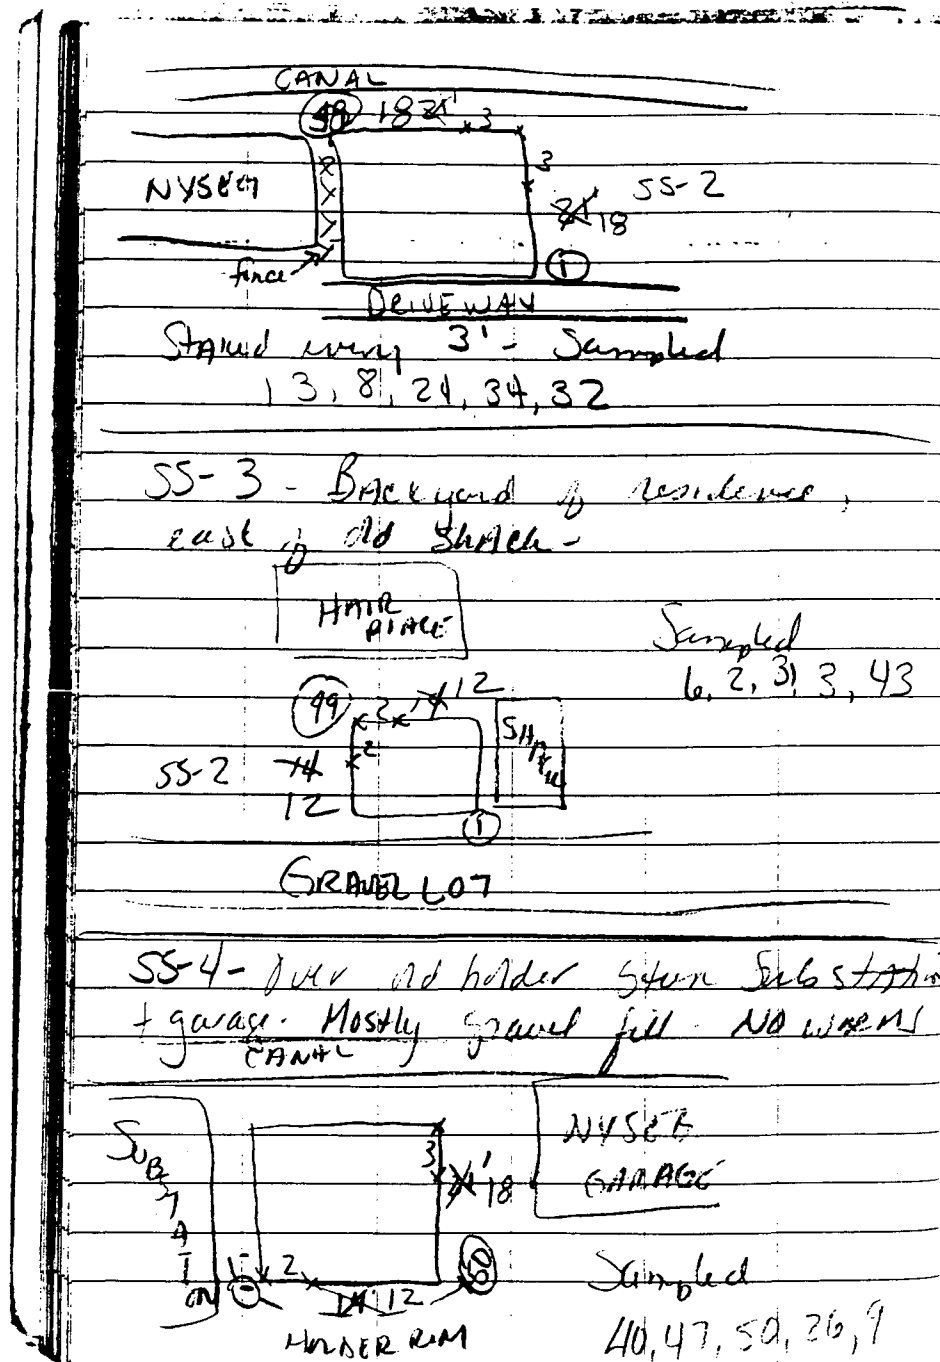 CANAL
18 3
NYSEG
3
SS-2
18
fence
1
DRIVEWAY
Staked every 3' - Sampled
13, 8, 24, 34, 32
SS-3 - Backyard of residence,
east of old shack -
HAIR
PLACE
Sampled
6, 2, 31, 3, 43
49 2 14 12
SHACK
SS-2 14 2
12
1
GRAVEL LOT
SS-4 - Over old holder btwn Substation
+ garage. Mostly gravel fill - NO WORMS
CANAL
SUBSTATION
NYSEG
GARAGE
3
18
1 2 14 12 50
Sampled
HOLDER RIM
40, 47, 50, 26, 9